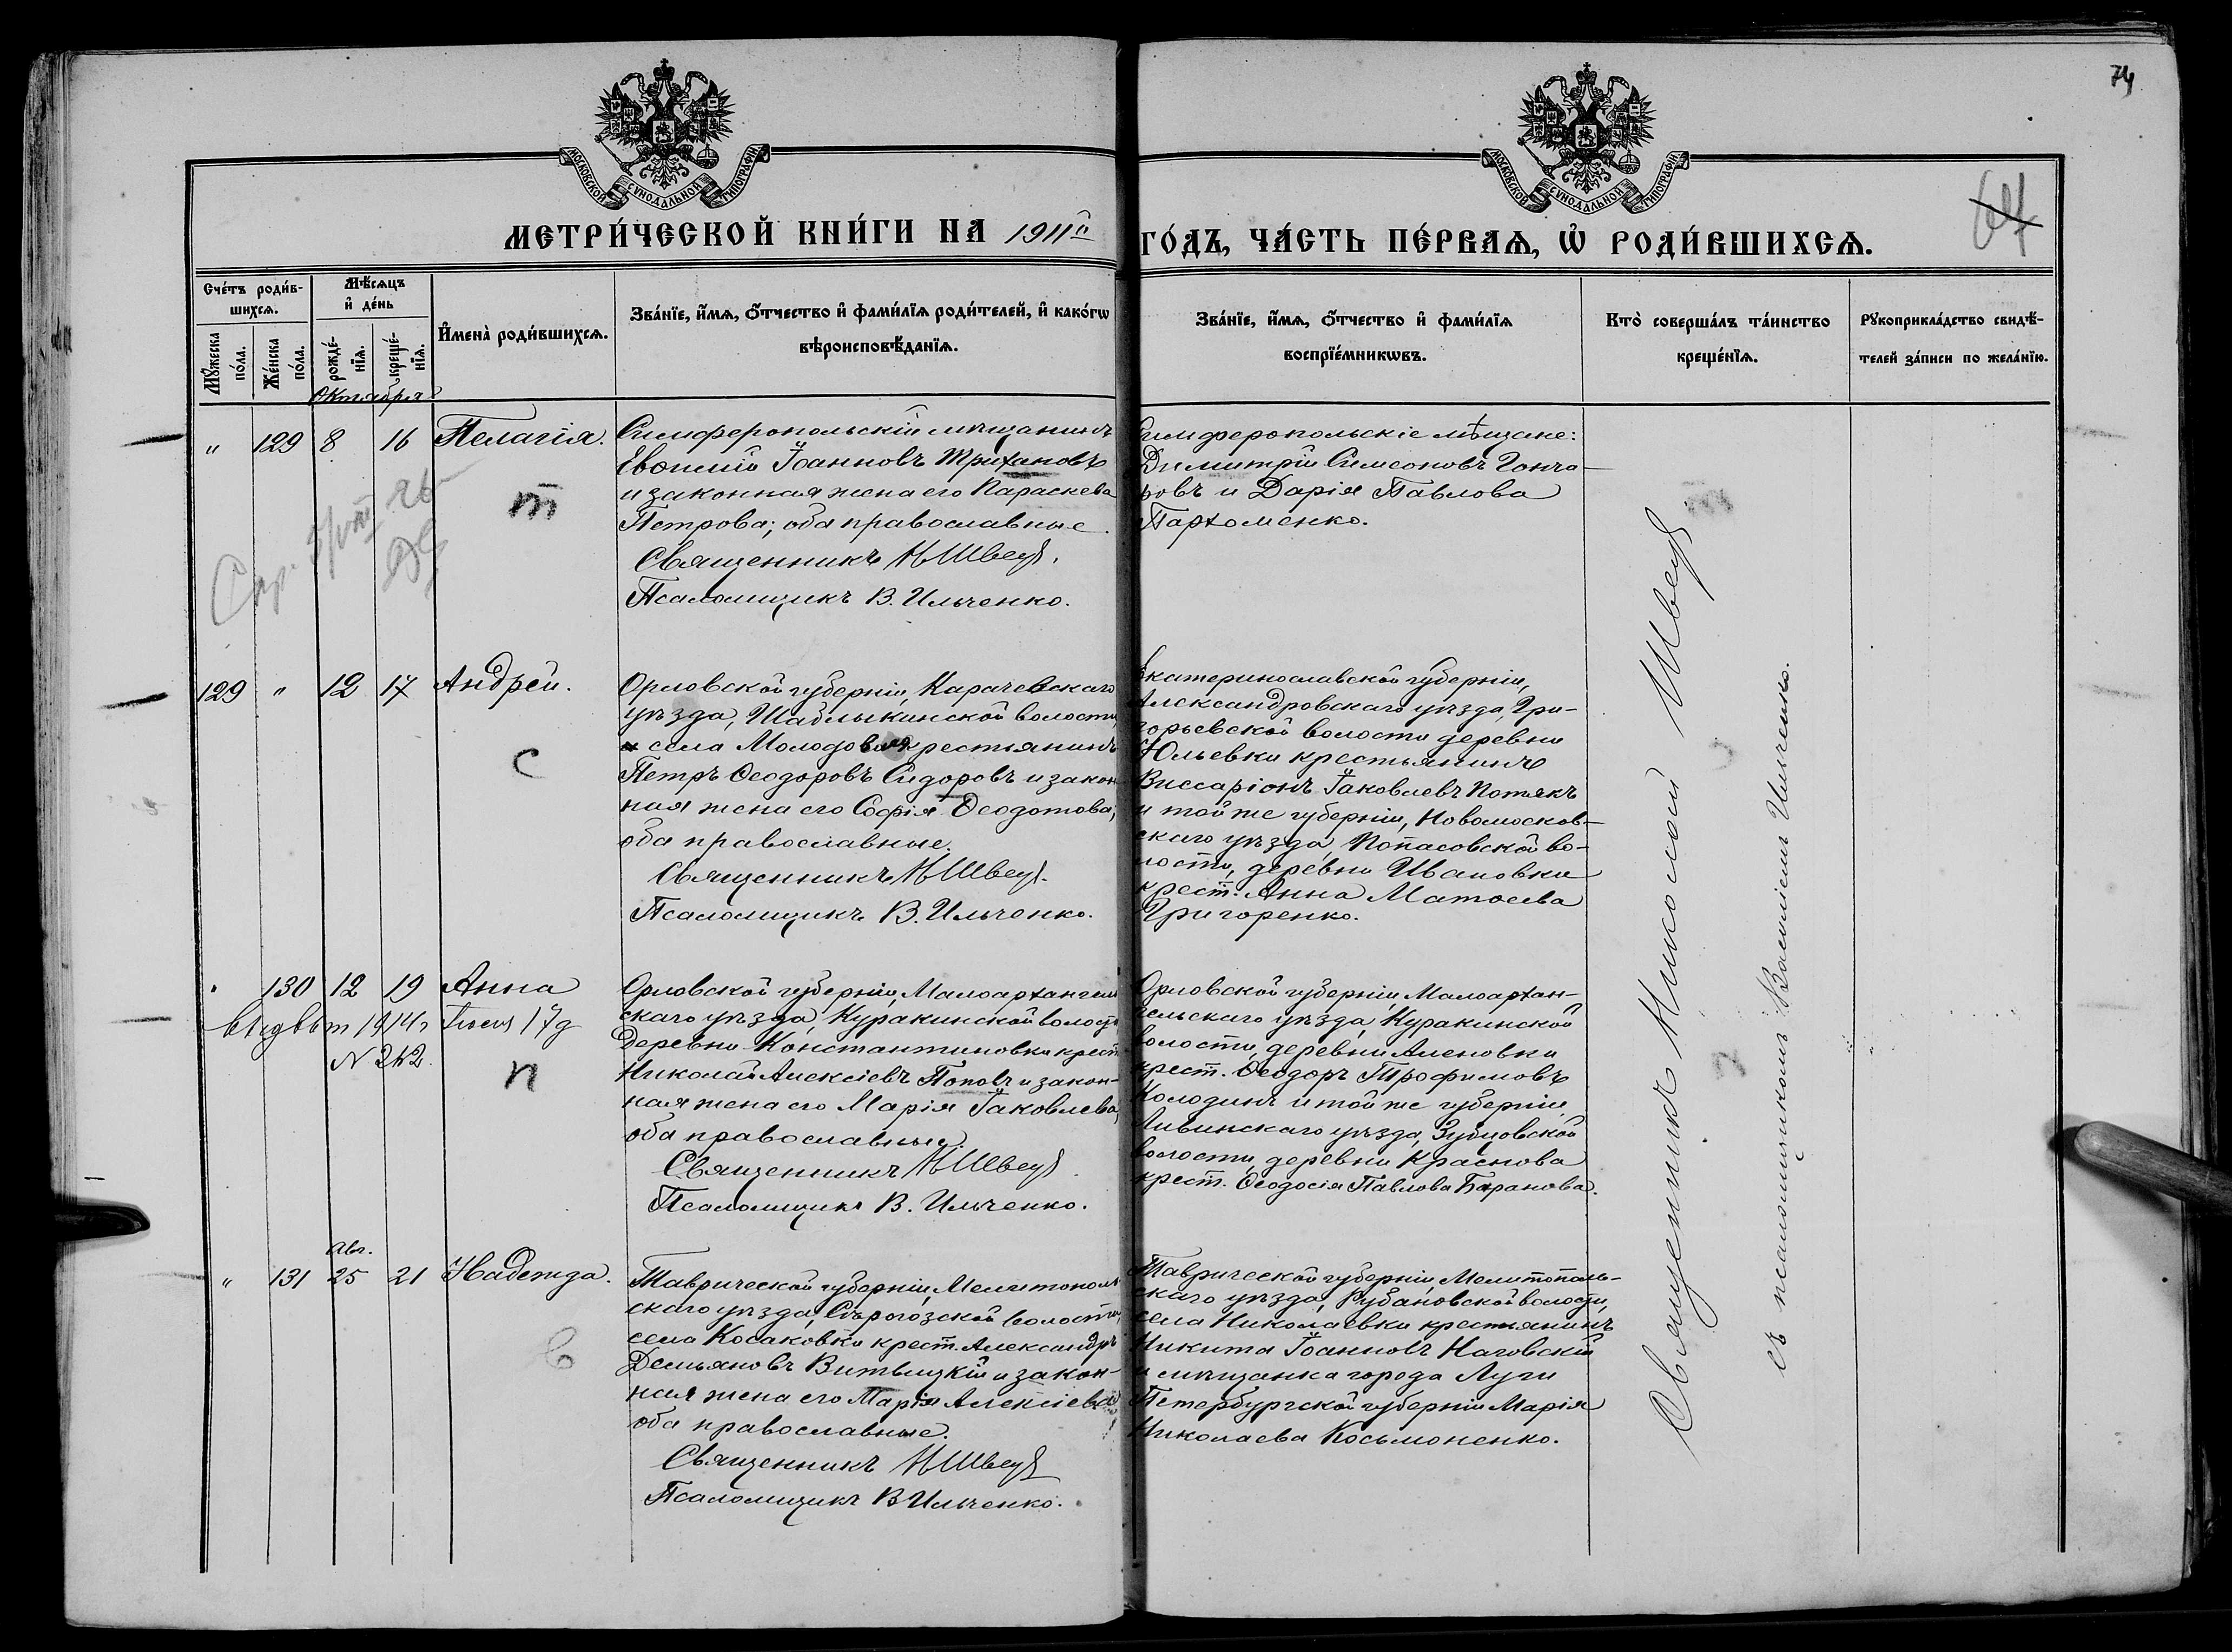 74
МОСКОВСКОЙ СѴНОДАЛЬНОЙ ТИПОГРАФІИ
МОСКОВСКОЙ СѴНОДАЛЬНОЙ ТИПОГРАФІИ
МЕТРИ́ЧЕСКОЙ КНИ́ГИ НА 1911й ГО́ДЪ, ЧА́СТЬ ПЕ́РВАѦ, Ѡ҆ РОДИ́ВШИХСѦ.
Сче́тъ роди́в-
шихсѧ.
Мꙋ́жеска по́ла.
Же́нска по́ла.
Мѣ́сѧцъ
и҆ де́нь
рожде́-
нїѧ.
креще́-
нїѧ.
Октября
И҆мена̀ роди́вшихсѧ.
Зва́нїе, и҆́мѧ, ѻ҆́тчество и҆ фамі́лїѧ роди́телей, и҆ како́гѡ
вѣроисповѣ́данїѧ.
Зва́нїе, и҆́мѧ, ѻ҆́тчество и҆ фамі́лїѧ
воспрїе́мникѡвъ.
Кто̀ соверша́лъ та́инство
креще́нїѧ.
Рꙋкоприкла́дство свидѣ́-
телей за́писи по жела́нїю.
" 129 8 16 Пелагія.
т
Симферопольскій мѣщанинъ
Евѳимій Іоанновъ Трихановъ
и законная жена его Параскева
Петрова; оба православные.
Священникъ Н Швецъ.
Псаломщикъ В. Ильченко.
Симферопольскіе мѣщане:
Димитрій Симеоновъ Гонча-
ровъ и Дарія Павлова
Пархоменко.
129 " 12 17 Андрей.
с
Орловской губерніи, Карачевскаго
уѣзда, Шаблыкинской волости,
села Молодоваго крестьянинъ
Петръ Ѳеодоровъ Сидоровъ и закон-
ная жена его Софія Ѳеодотова,
оба православные.
Священникъ Н Швецъ.
Псаломщикъ В. Ильченко.
Екатеринославской губерніи,
Александровскаго уѣзда, Гри-
горьевской волости деревни
Юльевки крестьянинъ
Виссаріонъ Іаковлевъ Потякъ
и той же губерніи, Новомосков-
скаго уѣзда, Попасовской во-
лости, деревни Ивановки
крест. Анна Матѳеева
Григоренко.
" 130 12 19 Анна
1914г
N 242.
п
Орловской губерніи, Малоархангель
скаго уѣзда, Куракинской волости
деревни Константиновки крест.
Николай Алексіевъ Поповъ и закон-
ная жена его Марія Іаковлева,
оба православные.
Священникъ Н Швецъ
Псаломщикъ В. Ильченко.
Орловской губерніи, Малоархан-
гельскаго уѣзда, Куракинской
волости, деревни Аленовки
крест. Ѳеодоръ Трофимовъ
Колодинъ и той же губерніи,
Ливинскаго уѣзда, Зубцовской
волости, деревни Краснова
крест. Ѳеодосія Павлова Баранова.
Авг.
" 131 25 21 Надежда.
в
Таврической губерніи, Мелитополь
скаго уѣзда, Сѣрогозской волости,
села Косаковки крест. Александръ
Демьяновъ Витвицкій и закон-
ная жена его Марія Алексіева
оба православные.
Священникъ Н Швецъ
Псаломщикъ В Ильченко.
Таврической губерніи, Мелитополь-
скаго уѣзда, Рубановской волости,
села Николаевки крестьянинъ
Никита Іоанновъ Наговскій
и мѣщанка города Луги
Петербургской губерніи Марія
Николаева Косьмоненко.
Священникъ Николай Швецъ
съ псаломщикомъ Василіемъ Ильченко.